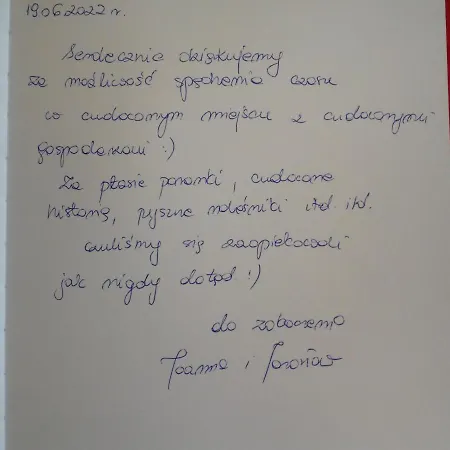 19.06.2022 r.
Serdecznie dziękujemy
za możliwość spędzenia czasu
w cudownym miejscu z cudownymi
gospodarzami :)
Za ptasie poranki, cudowne
historię, pyszne naleśniki itd. itd.
czuliśmy się zaopiekowani
jak nigdy dotąd :)
do zobaczenia
Joanna i